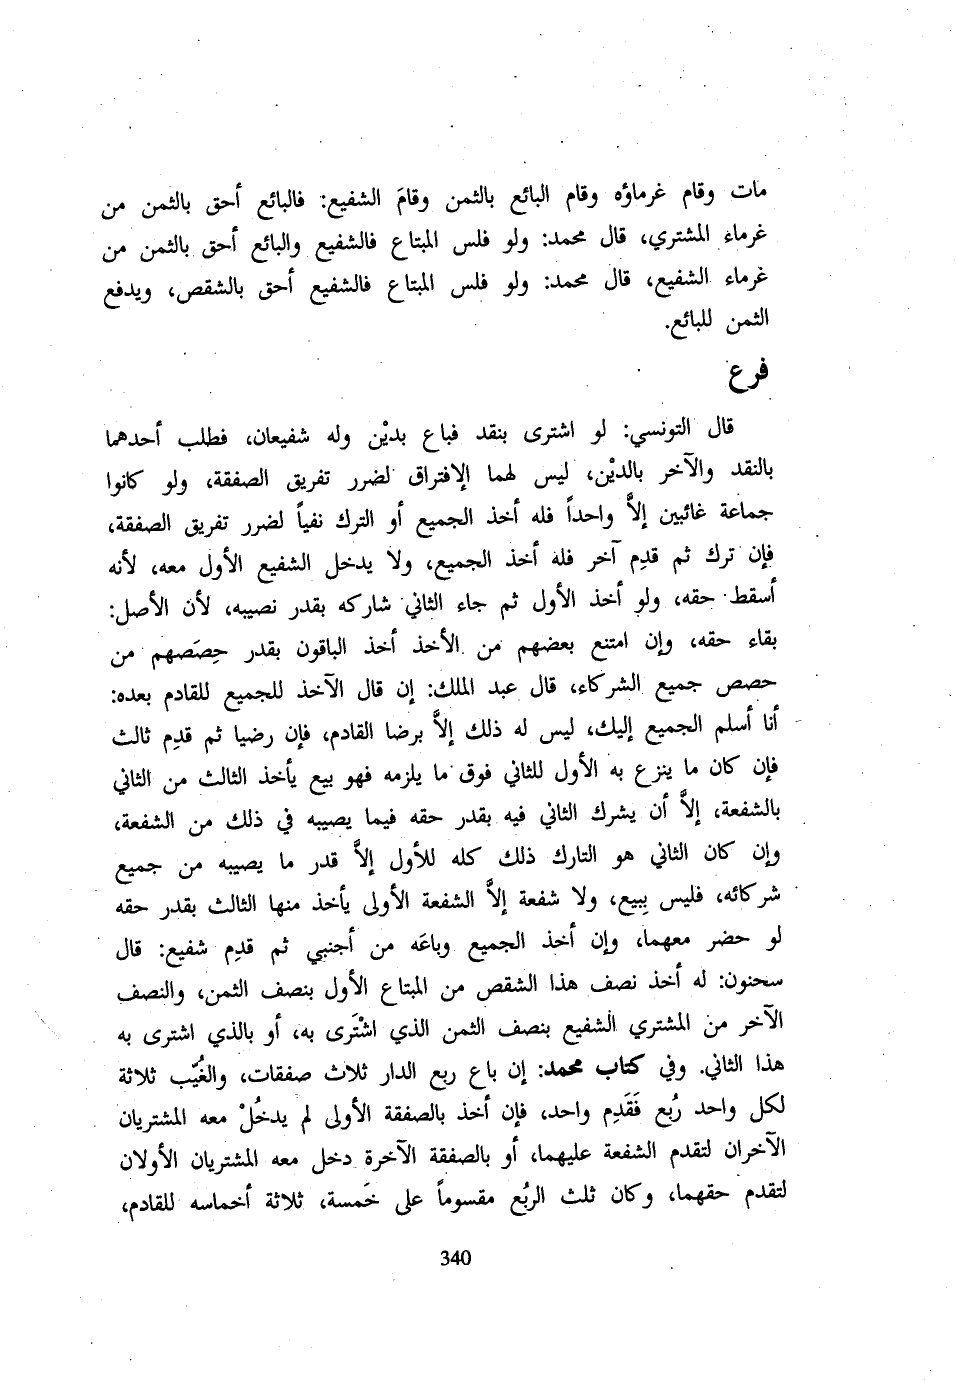 مات وقام غرماؤه وقام البائع بالثمن وقامَ الشفيع: فالبائع أحق بالثمن من
غرماء المشتري، قال محمد: ولو فلس المبتاع فالشفيع والبائع أحق بالثمن من
غرماء الشفيع، قال محمد: ولو فلس المبتاع فالشفيع أحق بالشقص، ويدفع
الثمن للبائع.
فرع
قال التونسي: لو اشترى بنقد فباع بديْن وله شفيعان، فطلب أحدهما
بالنقد والآخر بالديْن، ليس لهما الإفتراق لضرر تفريق الصفقة، ولو كانوا
جماعة غائبين إلاَّ واحداً فله أخذ الجميع أو الترك نفياً لضرر تفريق الصفقة،
فإن ترك ثم قدِم آخر فله أخذ الجميع، ولا يدخل الشفيع الأول معه، لأنه
أسقط حقه، ولو أخذ الأول ثم جاء الثاني شاركه بقدر نصيبه، لأن الأصل:
بقاء حقه، وإن امتنع بعضهم من الأخذ أخذ الباقون بقدر حِصَصهم من
حصص جميع الشركاء، قال عبد الملك: إن قال الآخذ للجميع للقادم بعده:
أنا أسلم الجميع إليك، ليس له ذلك إلاَّ برضا القادم، فإن رضيا ثم قدِم ثالث
فإن كان ما ينزع به الأول للثاني فوق ما يلزمه فهو بيع يأخذ الثالث من الثاني
بالشفعة، إلاَّ أن يشرك الثاني فيه بقدر حقه فيما يصيبه في ذلك من الشفعة،
وإن كان الثاني هو التارك ذلك كله للأول إلاَّ قدر ما يصيبه من جميع
شركائه، فليس بِبيع، ولا شفعة إلاَّ الشفعة الأولى يأخذ منها الثالث بقدر حقه
لو حضر معهما، وإن أخذ الجميع وباعَه من أجنبي ثم قدِم شفيع: قال
سحنون: له أخذ نصف هذا الشقص من المبتاع الأول بنصف الثمن، والنصف
الآخر من المشتري الشفيع بنصف الثمن الذي اشْتَرى به، أو بالذي اشترى به
هذا الثاني. وفي كتاب محمد: إن باع ربع الدار ثلاث صفقات، والغُيَّب ثلاثة
لكل واحد رُبع فَقَدِم واحد، فإن أخذ بالصفقة الأولى لم يدخُلْ معه المشتريان
الآخران لتقدم الشفعة عليهما، أو بالصفقة الآخرة دخل معه المشتريان الأولان
لتقدم حقهما، وكان ثلث الربُع مقسوماً على خَمسة، ثلاثة أخماسه للقادم،
340